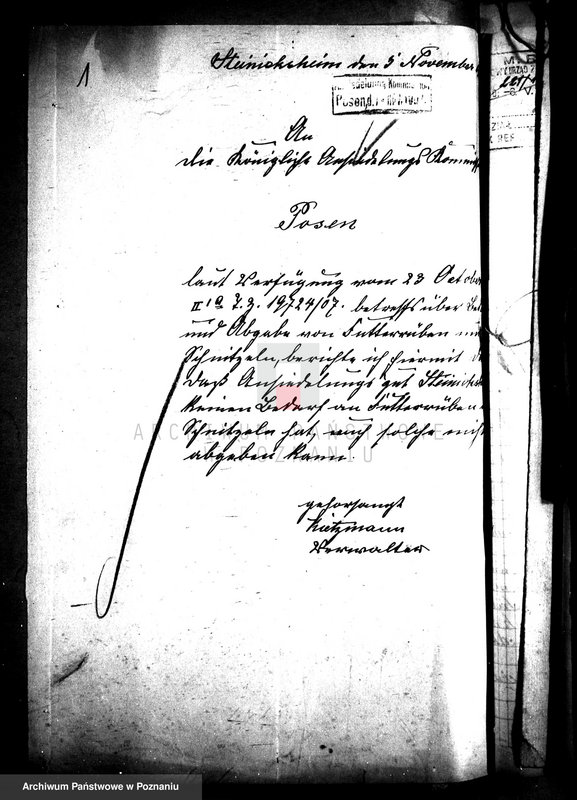 1
Steinicksheim den 5 November
Posen
An
die Königliche Ansiedelungs Kommiss
Posen
laut Verfügung vom 23 October
II a J. J. 19724/07. betreffs über Be
und Abgabe von Futterrüben
Schnitzeln, berichte ich hiermit
daß Ansiedelungs gut Steinicks
keinen Bedarf an Futterrüben
Schnitzeln hat, auch solche nicht
abgeben kann.
gehorsamst
Verwalter
ARCHIWUM PAŃSTWOWE
W POZNANIU
Archiwum Państwowe w Poznaniu